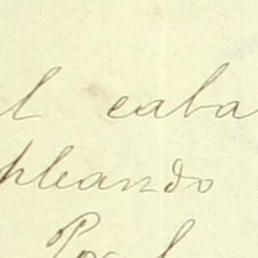 l caba
pleando
Por l